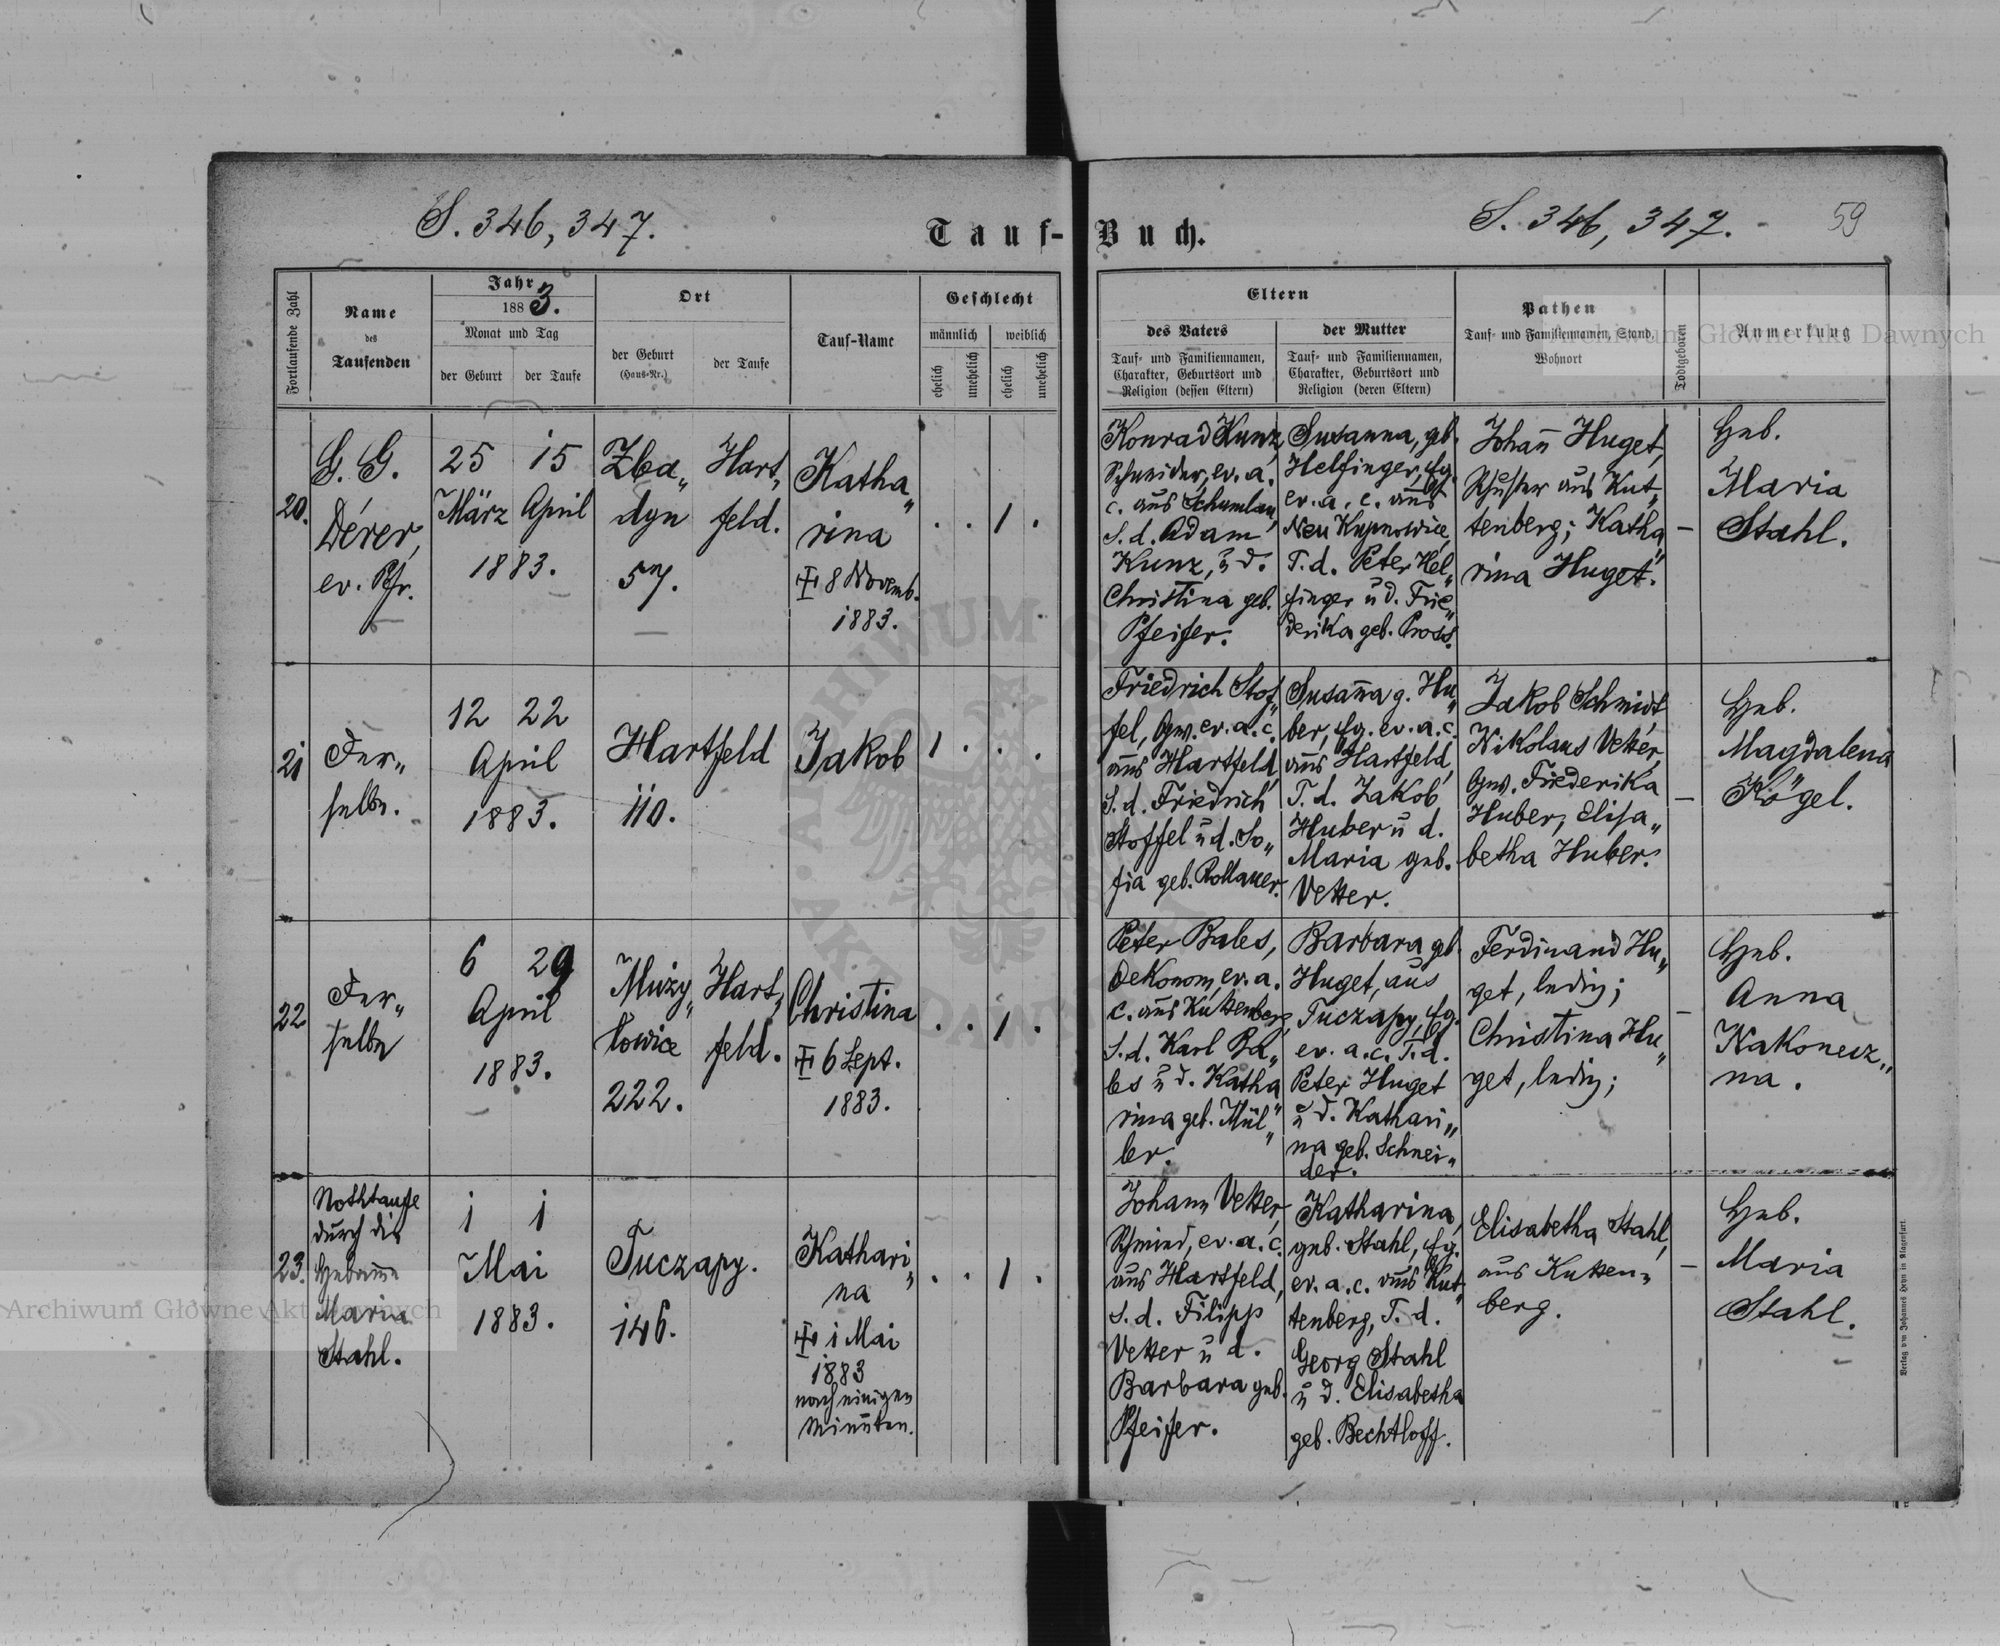 S. 346, 347.
Tauf-Buch.
S. 346, 347.
59
Fortlaufende Zahl
Name
des
Taufenden
Jahr
1883.
Monat und Tag
der Geburt
der Taufe
Ort
der Geburt
(Haus-Nr.)
der Taufe
Tauf-Name
Geschlecht
männlich
weiblich
ehelich
unehelich
ehelich
unehelich
Eltern
des Vaters
Tauf- und Familiennamen,
Charakter, Geburtsort und
Religion (dessen Eltern)
der Mutter
Tauf- und Familiennamen,
Charakter, Geburtsort und
Religion (deren Eltern)
Pathen
Tauf- und Familiennamen, Stand,
Wohnort
Todtgeboren
Anmerkung
20.
G. G.
Dérer,
ev. Pfr.
25 15
März April
1883.
Zba„
dyn
57.
Hart„
feld.
Katha„
rina
8 Novemb.
1883.
. . 1 .
Konrad Kunz,
Schneider, ev. a.
c. aus Schumlau,
S. d. Adam
Kunz, u d.
Christina geb.
Pfeifer.
Susanna, gb.
Helfinger, Eg.
ev. a. c. aus
Neu Kupnowice,
T. d. Peter Hel„
finger u d. Frie„
derika geb. Pross.
Johañ Huget,
Schuster aus Kut„
tenberg; Katha„
rina Huget.
–
Heb.
Maria
Stahl.
21
Der„
selbe.
12 22
April
1883.
Hartfeld
110.
Jakob
1 . . .
Friedrich Stof„
fel, Gw. ev. a. c.
aus Hartfeld,
S. d. Friedrich
Stoffel u d. So„
fia geb. Rollauer.
Susaña g. Hu„
ber, Eg. ev. a. c.
aus Hartfeld,
T. d. Jakob
Huber u d.
Maria geb.
Vetter.
Jakob Schmidt,
Nikolaus Vetter,
Gw. Friederika
Huber, Elisa„
betha Huber.
–
Heb.
Magdalena
Kögel.
22
Der„
selbe
6 29
April
1883.
Muzy„
lowice
222.
Hart„
feld.
Christina
6 Sept.
1883.
. . 1 .
Peter Bales,
Oekonom, ev. a.
c. aus Kuttenberg,
S. d. Karl Ba„
les u d. Katha„
rina geb. Mül„
ler.
Barbara gb.
Huget, aus
Tuczapy, Eg.
ev. a. c. T. d.
Peter Huget
u d. Kathari„
na geb. Schnei„
der.
Ferdinand Hu„
get, ledig;
Christina Hu„
get, ledig;
–
Heb.
Anna
Nakonecz„
na.
23.
Nothtaufe
durch die
Hebame
Maria
Stahl.
1 1
Mai
1883.
Tuczapy.
146.
Kathari„
na
1 Mai
1883
nach einigen
Minuten.
. . 1 .
Johann Vetter,
Schmied, ev. a. c.
aus Hartfeld,
S. d. Filipp
Vetter u d.
Barbara geb.
Pfeifer.
Katharina,
geb. Stahl, Eg.
ev. a. c. aus Kut„
tenberg, T. d.
Georg Stahl
u d. Elisabetha
geb. Bechtloff.
Elisabetha Stahl,
aus Kutten„
berg.
–
Heb.
Maria
Stahl.
Verlag von Johannes Heyn in Klagenfurt.
Archiwum Główne Akt Dawnych
Archiwum Główne Akt Dawnych